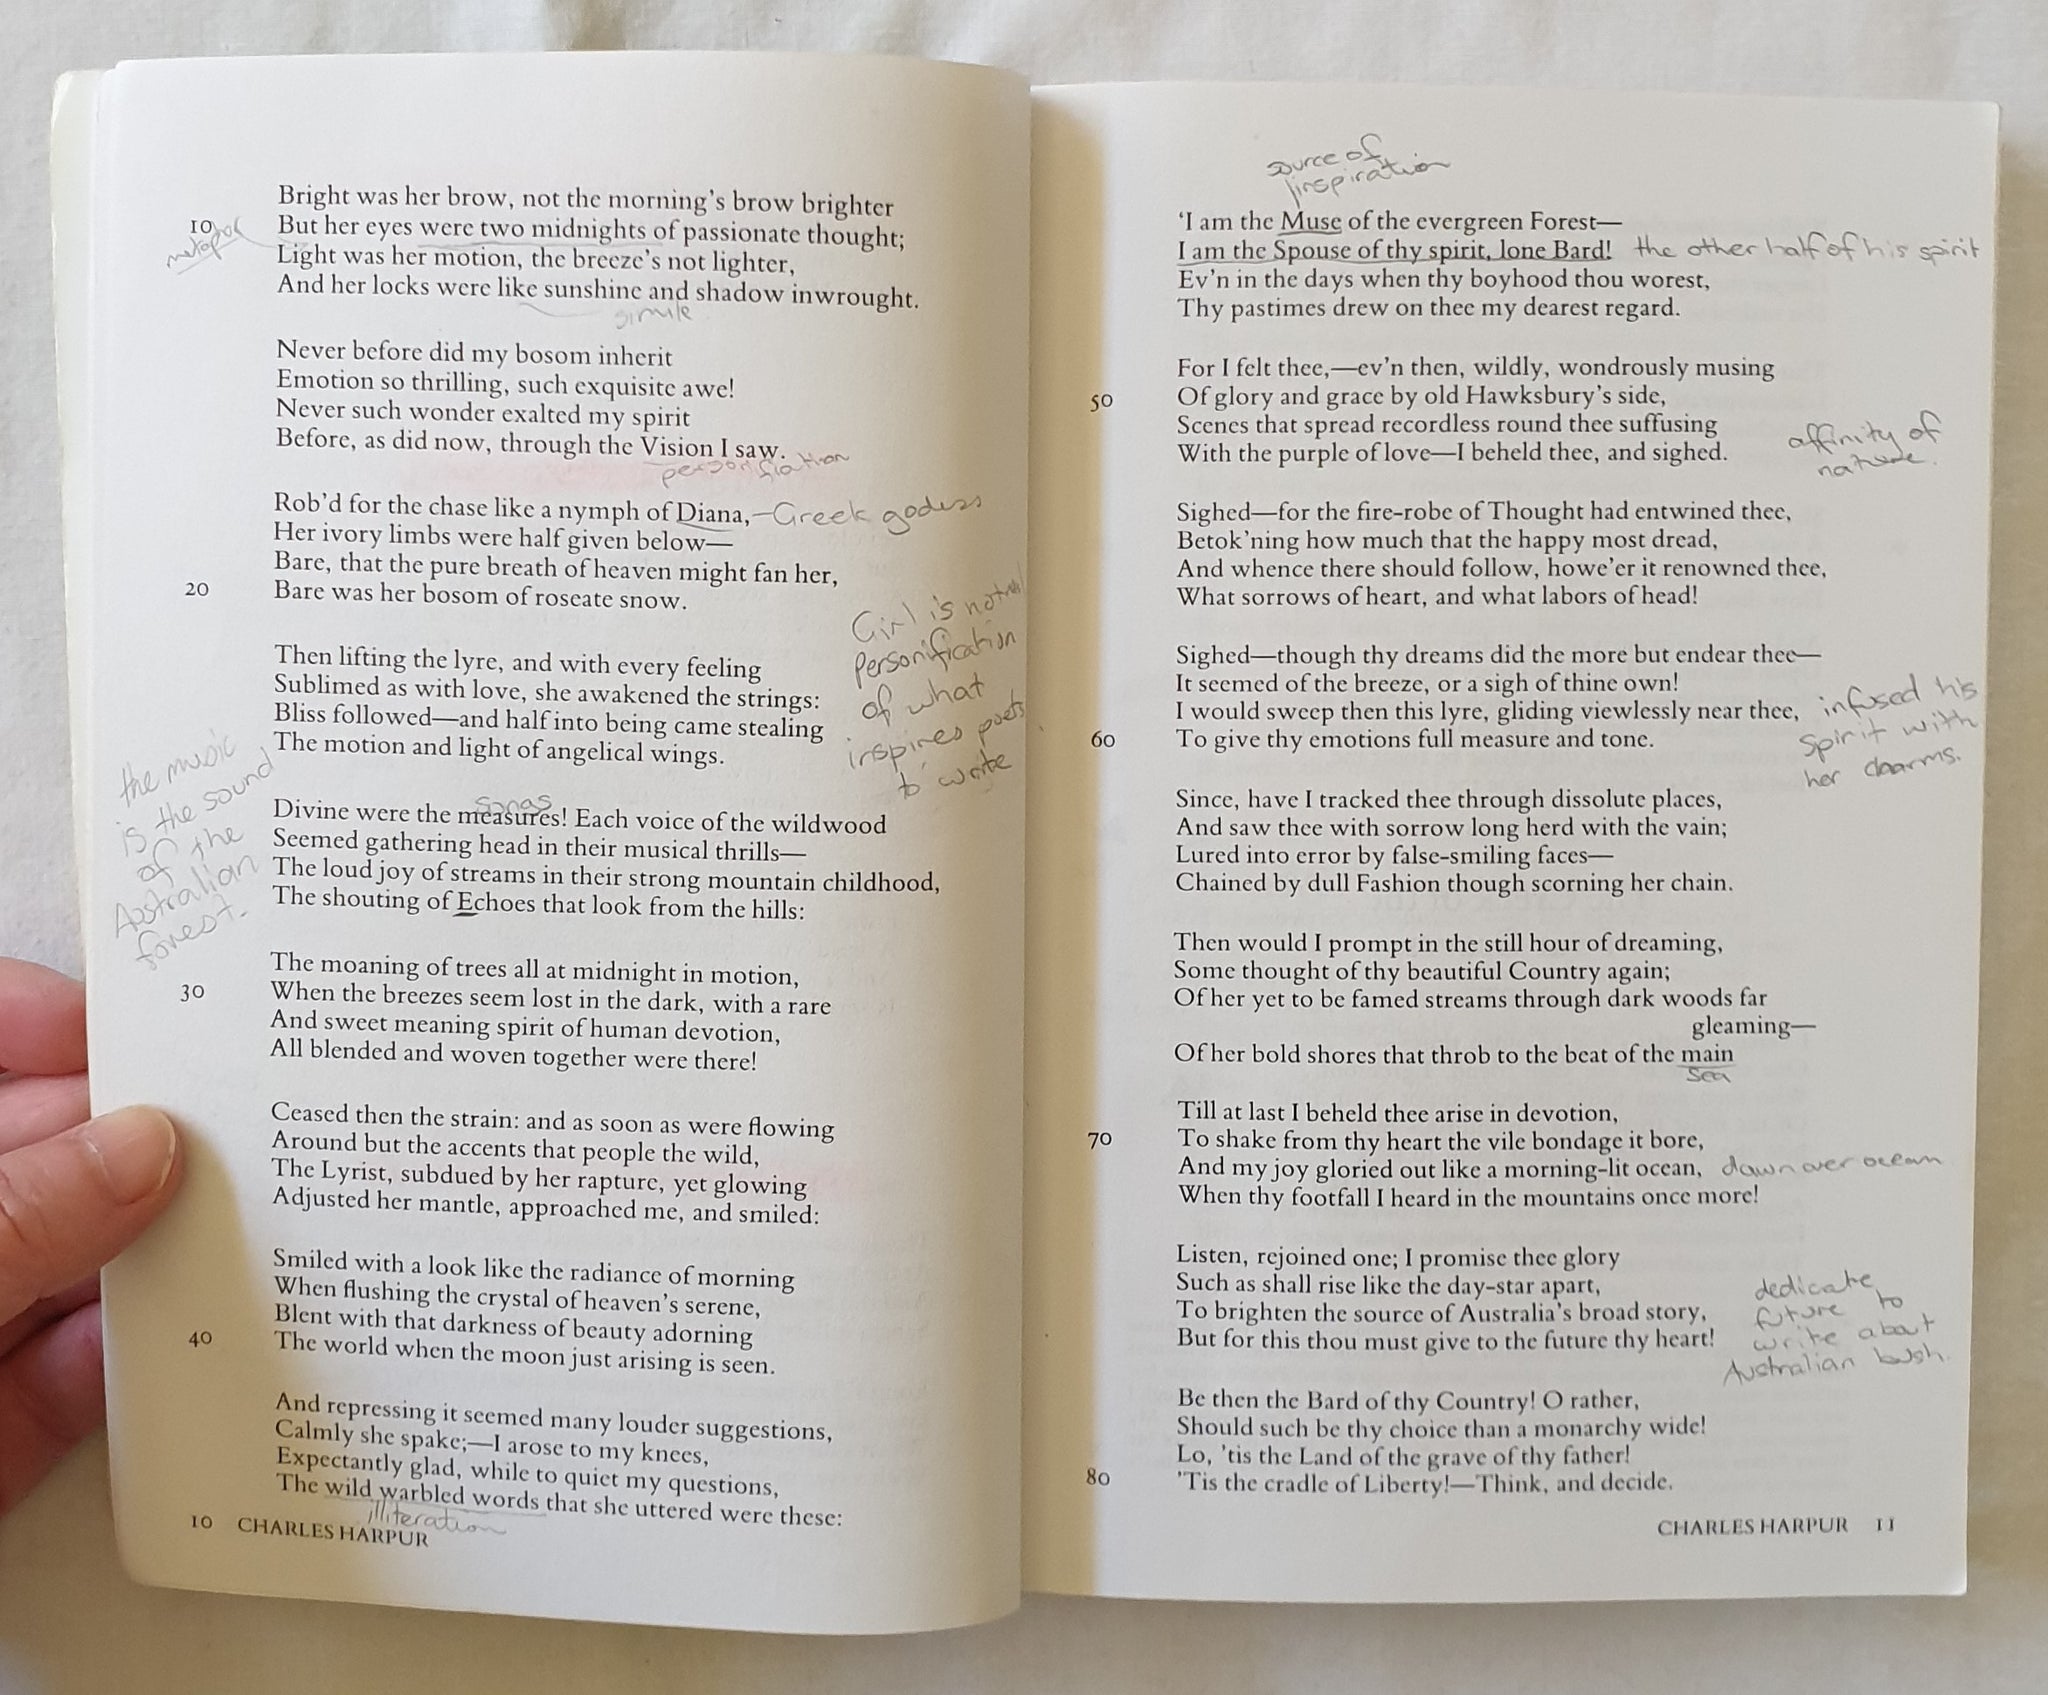 Bright was her brow, not the morning's brow brighter
10 But her eyes were two midnights of passionate thought;
metaphor
Light was her motion, the breeze's not lighter,
And her locks were like sunshine and shadow inwrought.
simile
Never before did my bosom inherit
Emotion so thrilling, such exquisite awe!
Never such wonder exalted my spirit
Before, as did now, through the Vision I saw.
personifiation
Rob'd for the chase like a nymph of Diana, – Greek godess
Her ivory limbs were half given below—
Bare, that the pure breath of heaven might fan her,
20 Bare was her bosom of roseate snow.
Girl is
personification
of what
inspires poets
to write
Then lifting the lyre, and with every feeling
Sublimed as with love, she awakened the strings:
Bliss followed—and half into being came stealing
The motion and light of angelical wings.
the music
is the sound
of the
Australian
forest.
songs
Divine were the measures! Each voice of the wildwood
Seemed gathering head in their musical thrills—
The loud joy of streams in their strong mountain childhood,
The shouting of Echoes that look from the hills:
The moaning of trees all at midnight in motion,
30 When the breezes seem lost in the dark, with a rare
And sweet meaning spirit of human devotion,
All blended and woven together were there!
Ceased then the strain: and as soon as were flowing
Around but the accents that people the wild,
The Lyrist, subdued by her rapture, yet glowing
Adjusted her mantle, approached me, and smiled:
Smiled with a look like the radiance of morning
When flushing the crystal of heaven's serene,
Blent with that darkness of beauty adorning
40 The world when the moon just arising is seen.
And repressing it seemed many louder suggestions,
Calmly she spake;—I arose to my knees,
Expectantly glad, while to quiet my questions,
The wild warbled words that she uttered were these:
illiteration
10 CHARLES HARPUR
source of
inspiration
'I am the Muse of the evergreen Forest—
I am the Spouse of thy spirit, lone Bard! the other half of his spirit
Ev'n in the days when thy boyhood thou worest,
Thy pastimes drew on thee my dearest regard.
For I felt thee,—ev'n then, wildly, wondrously musing
50 Of glory and grace by old Hawksbury's side,
Scenes that spread recordless round thee suffusing
With the purple of love—I beheld thee, and sighed.
affinity of
nature.
Sighed—for the fire-robe of Thought had entwined thee,
Betok'ning how much that the happy most dread,
And whence there should follow, howe'er it renowned thee,
What sorrows of heart, and what labors of head!
Sighed—though thy dreams did the more but endear thee—
It seemed of the breeze, or a sigh of thine own!
I would sweep then this lyre, gliding viewlessly near thee,
60 To give thy emotions full measure and tone.
infused his
spirit with
her charms.
Since, have I tracked thee through dissolute places,
And saw thee with sorrow long herd with the vain;
Lured into error by false-smiling faces—
Chained by dull Fashion though scorning her chain.
Then would I prompt in the still hour of dreaming,
Some thought of thy beautiful Country again;
Of her yet to be famed streams through dark woods far
gleaming—
Of her bold shores that throb to the beat of the main
sea
Till at last I beheld thee arise in devotion,
70 To shake from thy heart the vile bondage it bore,
And my joy gloried out like a morning-lit ocean, dawn over ocean
When thy footfall I heard in the mountains once more!
Listen, rejoined one; I promise thee glory
Such as shall rise like the day-star apart,
To brighten the source of Australia's broad story,
But for this thou must give to the future thy heart!
dedicate
future to
write about
Australian bush.
Be then the Bard of thy Country! O rather,
Should such be thy choice than a monarchy wide!
Lo, 'tis the Land of the grave of thy father!
80 'Tis the cradle of Liberty!—Think, and decide.
CHARLES HARPUR 11